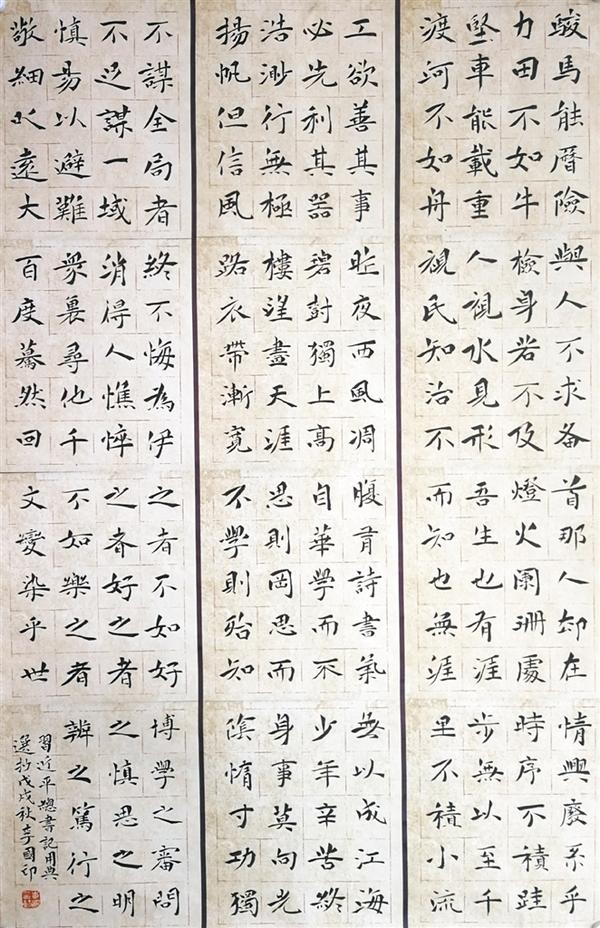 駿馬能曆險
力田不如牛
堅車能載重
渡河不如舟
工欲善其事
必先利其器
浩渺行無極
揚帆但信風
不謀全局者
不足謀一域
慎易以避難
敬細以遠大
與人不求备
檢身若不及
人視水見形
視民知治不
昨夜西風凋
碧树獨上高
樓望盡天涯
路衣帶漸寬
終不悔為伊
消得人憔悴
衆裏尋他千
百度驀然回
首那人却在
燈火阑珊處
吾生也有涯
而知也無涯
腹有詩書氣
自華學而不
思則罔思而
不學則殆知
之者不如好
之者好之者
不如樂之者
文變染乎世
情興廢系乎
時序不積跬
步無以至千
里不積小流
無以成江海
少年辛苦終
身事莫向光
陰惰寸功獨
博學之審問
之慎思之明
辨之篤行之
習近平總書記用典
選抄戊戌秋李國印